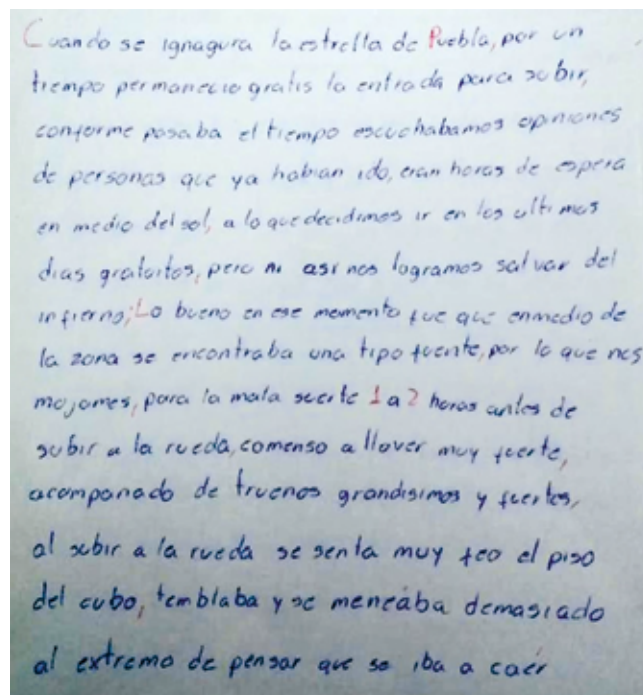 Cuando se ignagura la estrella de Puebla, por un
tiempo permanecio gratis la entrada para subir,
conforme pasaba el tiempo escuchabamos opiniones
de personas que ya habian ido, eran horas de espera
en medio del sol, a lo que decidimos ir en los ultimos
dias gratuitos, pero ni asi nos logramos salvar del
infierno; Lo bueno en ese momento fue que enmedio de
la zona se encontraba una tipo fuente, por lo que nos
mojamos, para la mala suerte 1 a 2 horas antes de
subir a la rueda, comenso a llover muy fuerte,
acompanado de truenos grandisimos y fuertes,
al subir a la rueda se sentia muy feo el piso
del cubo, temblaba y se meneaba demasiado
al extremo de pensar que se iba a caer